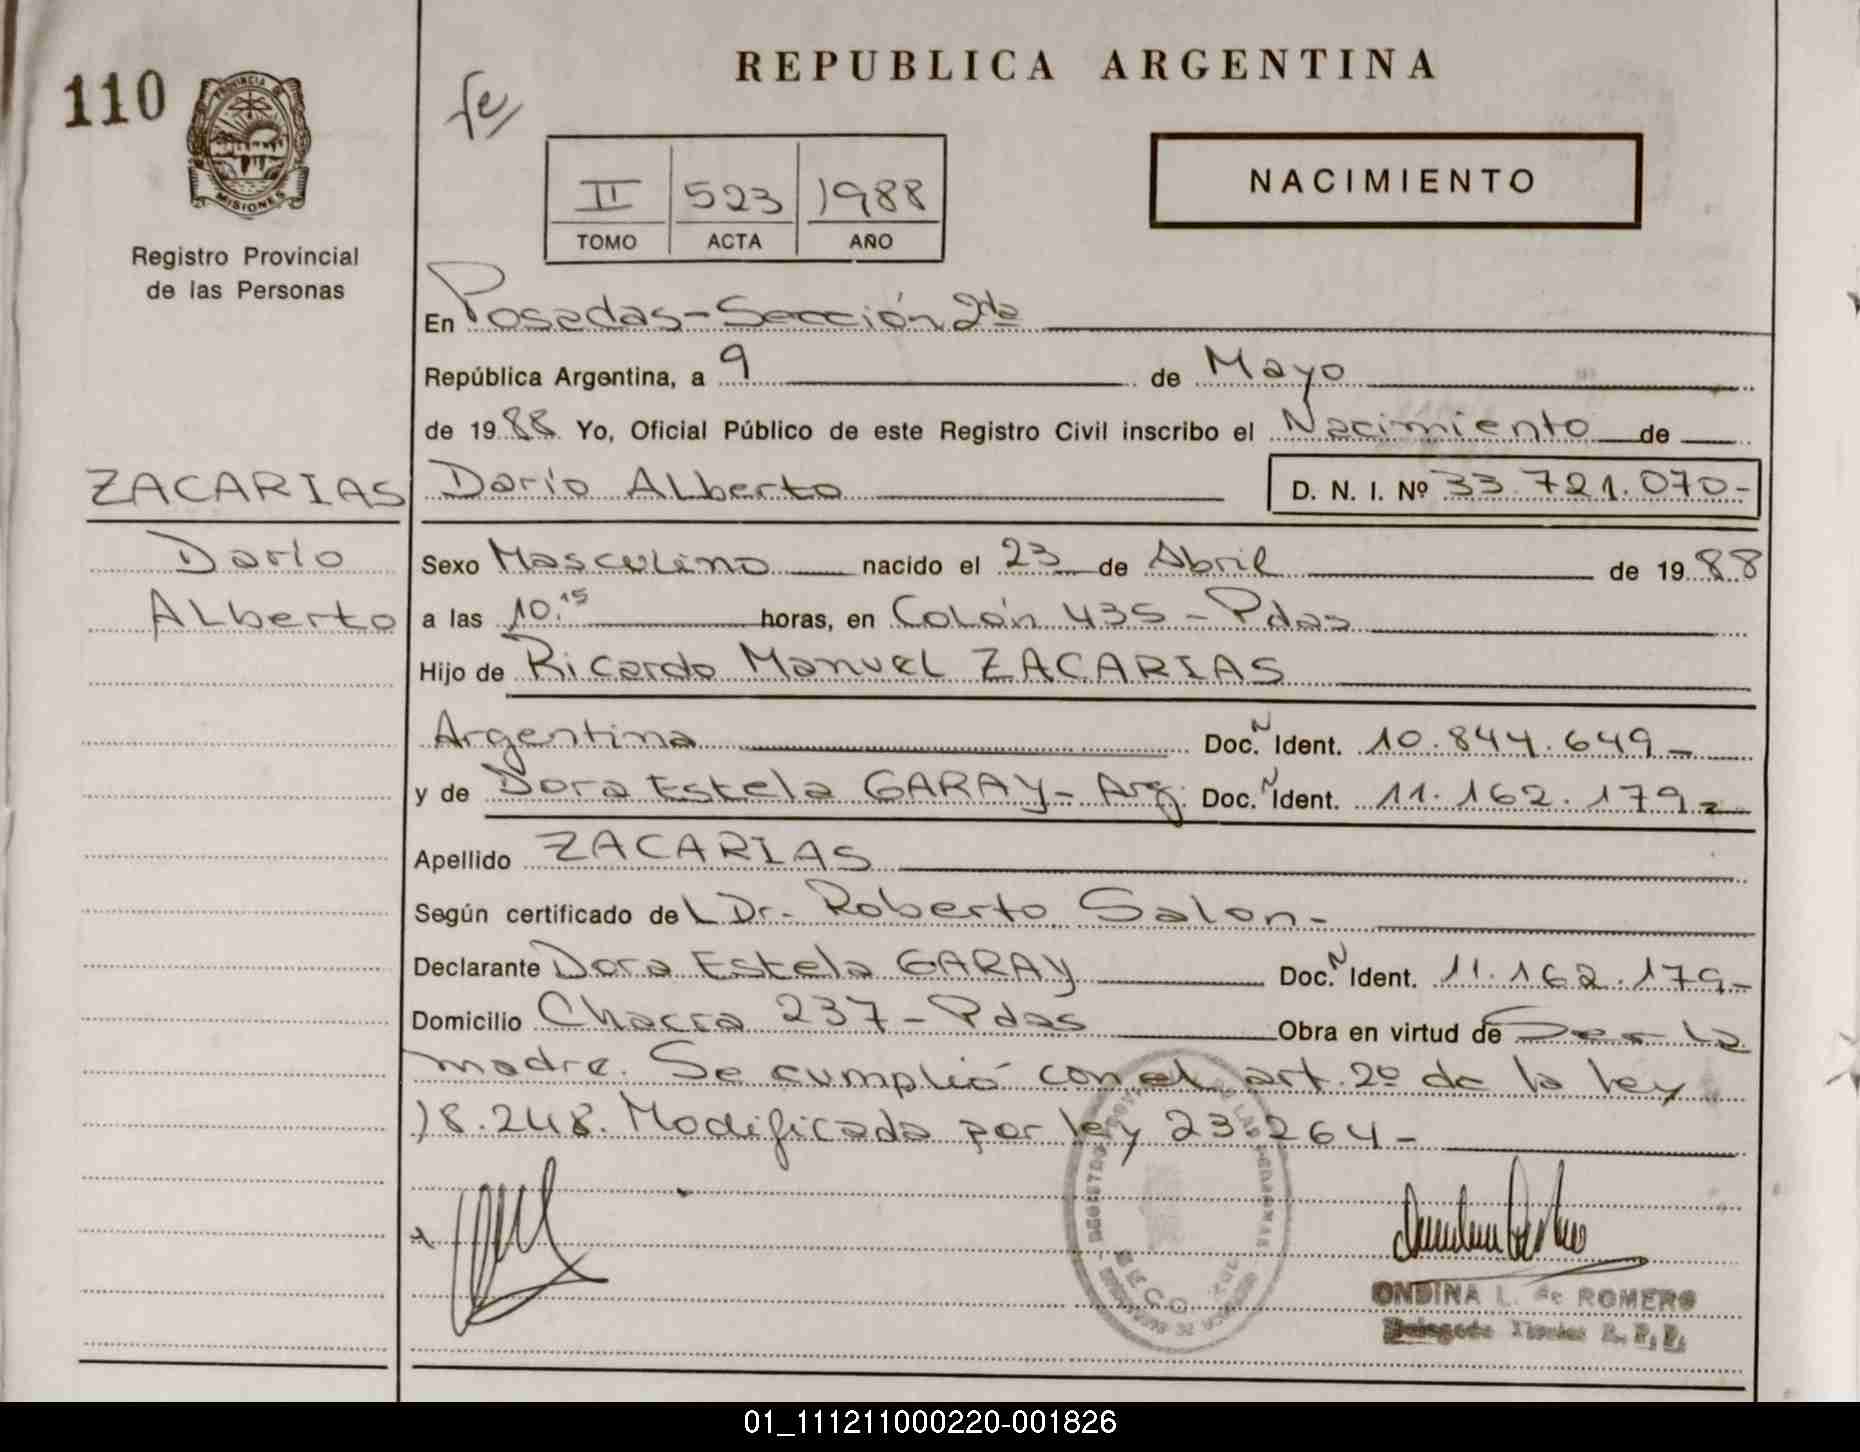 110
PROVINCIA DE
MISIONES
Registro Provincial
de las Personas
REPUBLICA ARGENTINA
II 523 1988
TOMO ACTA AÑO
NACIMIENTO
En Posadas-Sección 2da
República Argentina, a 9 de Mayo
de 1988 Yo, Oficial Público de este Registro Civil inscribo el Nacimiento de
ZACARIAS Darío Alberto D. N. I. Nº 33.721.070-
Darío
Alberto
Sexo Masculino nacido el 23 de Abril de 1988
a las 10.15 horas, en Colón 435 - Pdas
Hijo de Ricardo Manuel ZACARIAS
Argentina Doc. N Ident. 10.844.649-
y de Dora Estela GARAY- Arg. Doc. N Ident. 11.162.179-
Apellido ZACARIAS
Según certificado del Dr. Roberto Salon-
Declarante Dora Estela GARAY Doc. N Ident. 11.162.179-
Domicilio Chacra 237 - Pdas Obra en virtud de Ser la
madre. Se cumplió con el art. 2º de la ley
18.248. Modificada por ley 23.264-
ONDINA L. de ROMERO
01_111211000220-001826